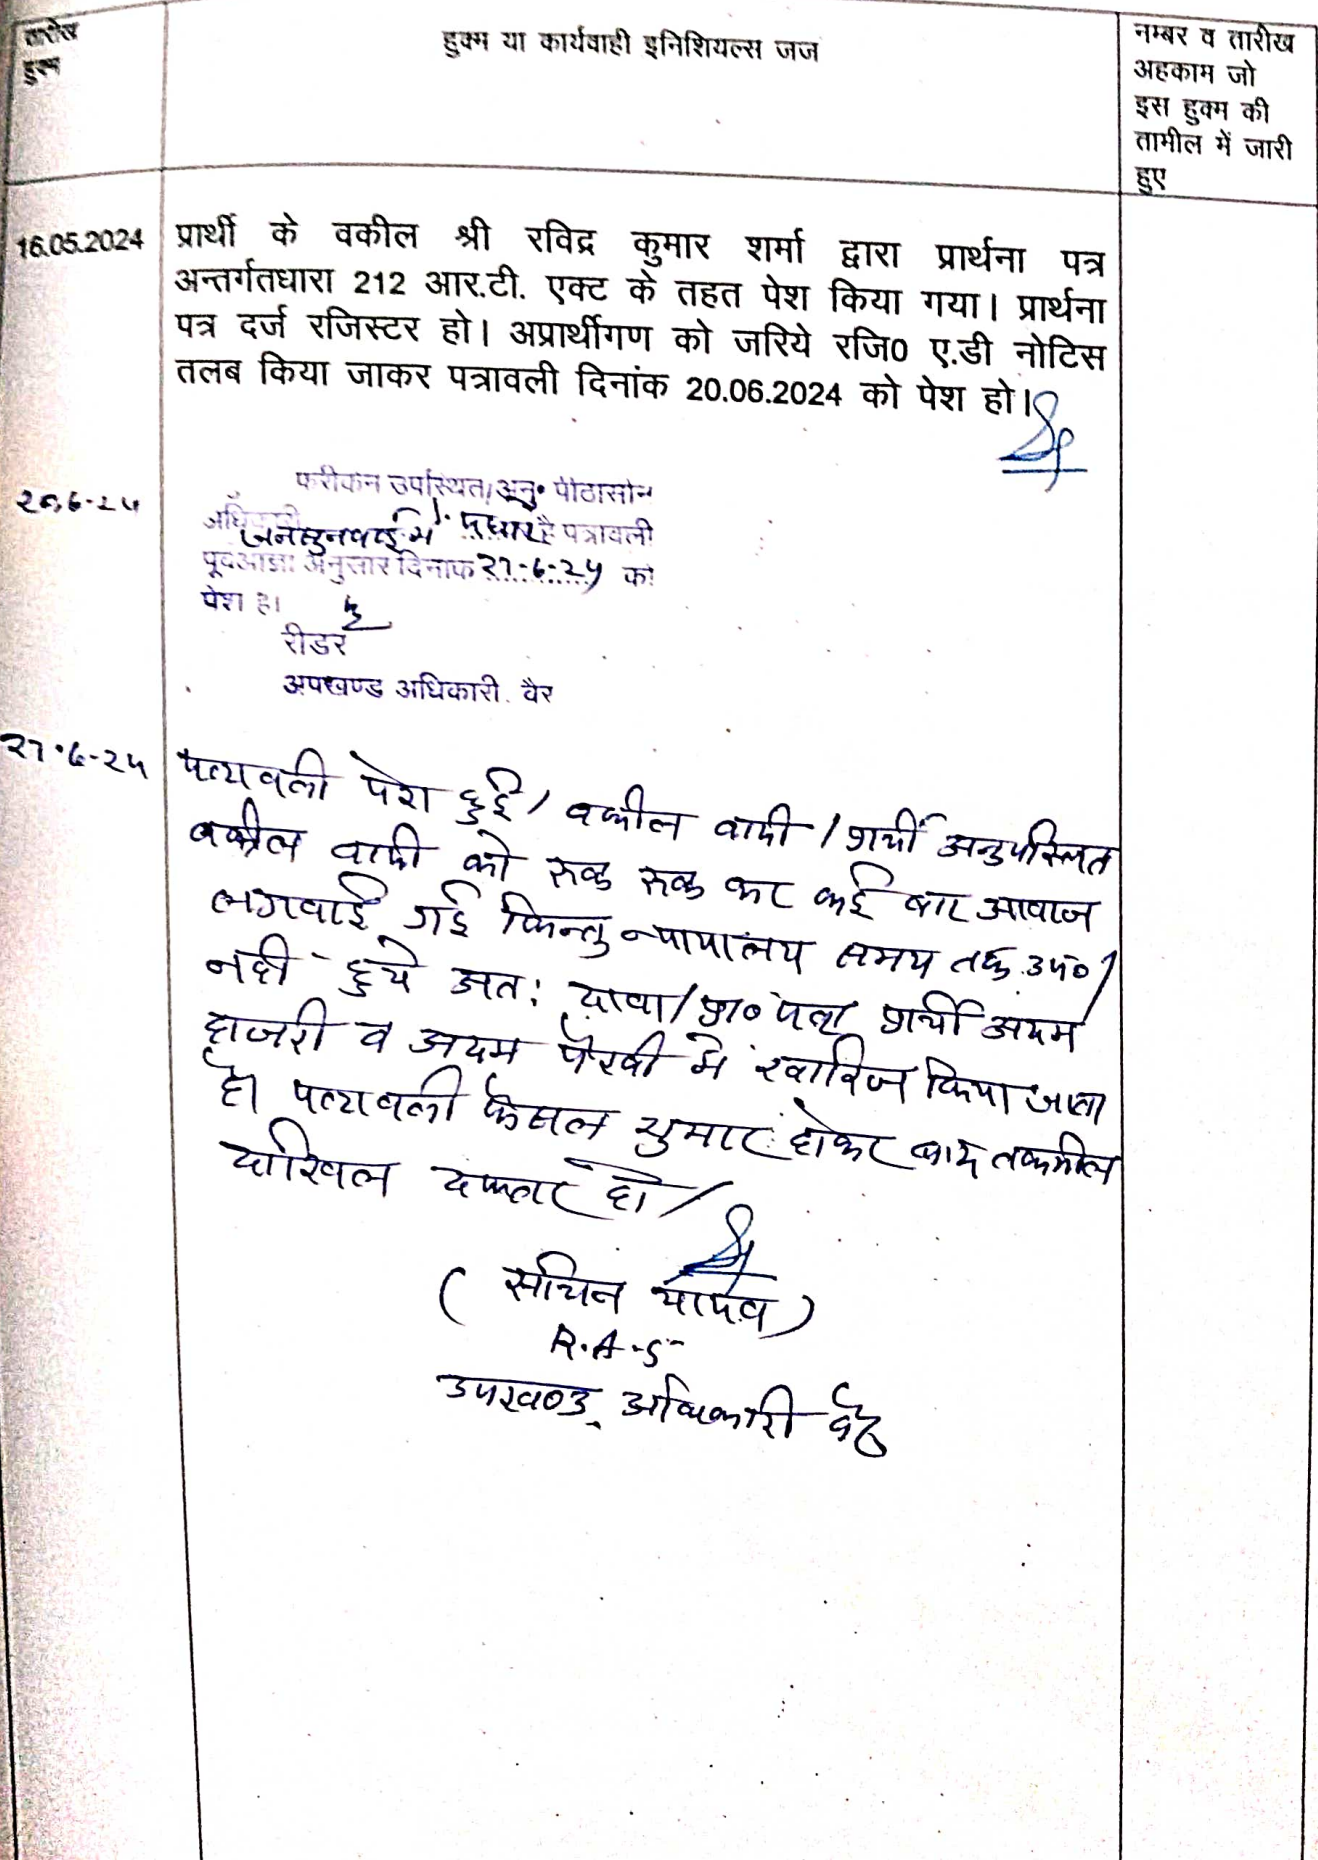 तारीख
हुक्म
हुक्म या कार्यवाही इनिशियल्स जज
नम्बर व तारीख
अहकाम जो
इस हुक्म की
तामील में जारी
हुए
16.05.2024
प्रार्थी के वकील श्री रविद्र कुमार शर्मा द्वारा प्रार्थना पत्र
अन्तर्गतधारा 212 आर.टी. एक्ट के तहत पेश किया गया। प्रार्थना
पत्र दर्ज रजिस्टर हो। अप्रार्थीगण को जरिये रजि0 ए.डी नोटिस
तलब किया जाकर पत्रावली दिनांक 20.06.2024 को पेश हो।
फरीकन उपस्थित/अनु० पीठासीन
अधिकारी जनसुनवाई में पधारे है पत्रावली
पूर्वआज्ञा अनुसार दिनांक 27-6-24 को
पेश हो।
रीडर
उपखण्ड अधिकारी. वैर
27.6-24
पत्रावली पेश हुई / वकील वादी / प्रार्थी अनुपस्थित
वकील वादी को रूक रूक कर कई बार आवाज
लगवाई गई किन्तु न्यायालय समय तक उप० /
नही हुये अत: दावा / प्रा० पत्र प्रार्थी अदम
हाजरी व अदम पैरवी में खारिज किया जाता
है। पत्रावली फैसल शुमार होकर बाद तकमील
दाखिल दफ्तर हो /
( सचिन यादव )
R.A.S
उपखण्ड अधिकारी वैर